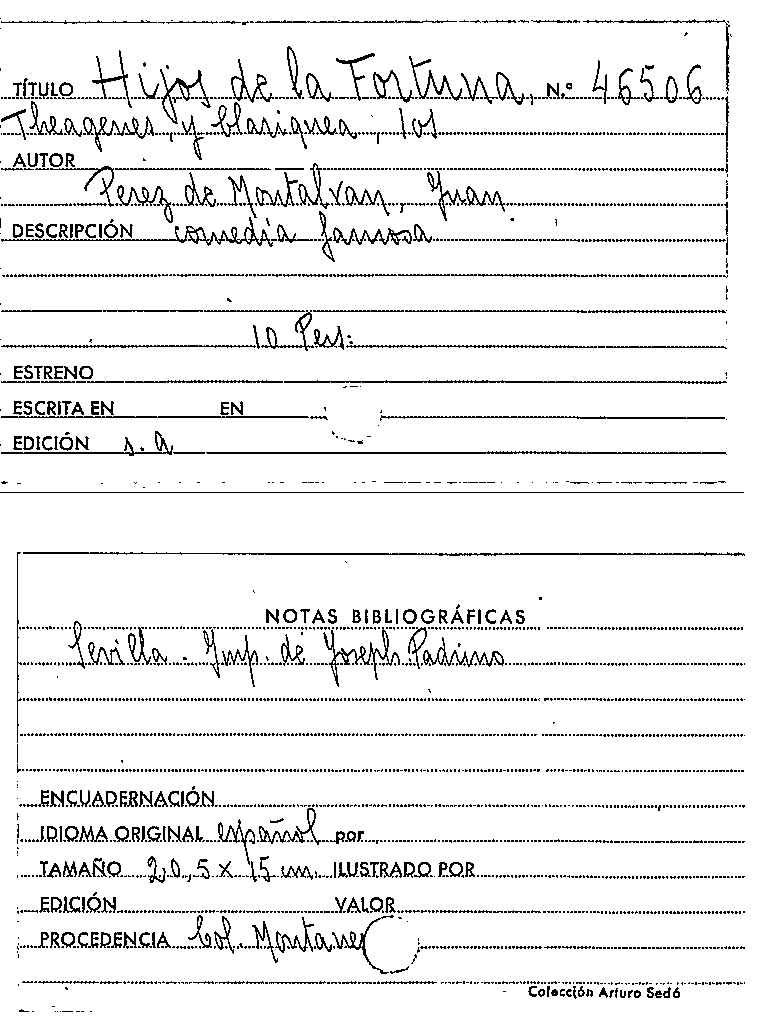 TÍTULO Hijos de la Fortuna, N.º 46506
Theagenes, y Clariquea, los
AUTOR
Perez de Montalvan, Juan
DESCRIPCIÓN comedia famosa
10 Pers:
ESTRENO
ESCRITA EN EN
EDICIÓN s. a
NOTAS BIBLIOGRÁFICAS
Sevilla. Imp. de Joseph Padrino
ENCUADERNACIÓN
IDIOMA ORIGINAL español por
TAMAÑO 20,5 x 15 cm. ILUSTRADO POR
EDICIÓN VALOR
PROCEDENCIA Col. Montaner
Colección Arturo Sedó